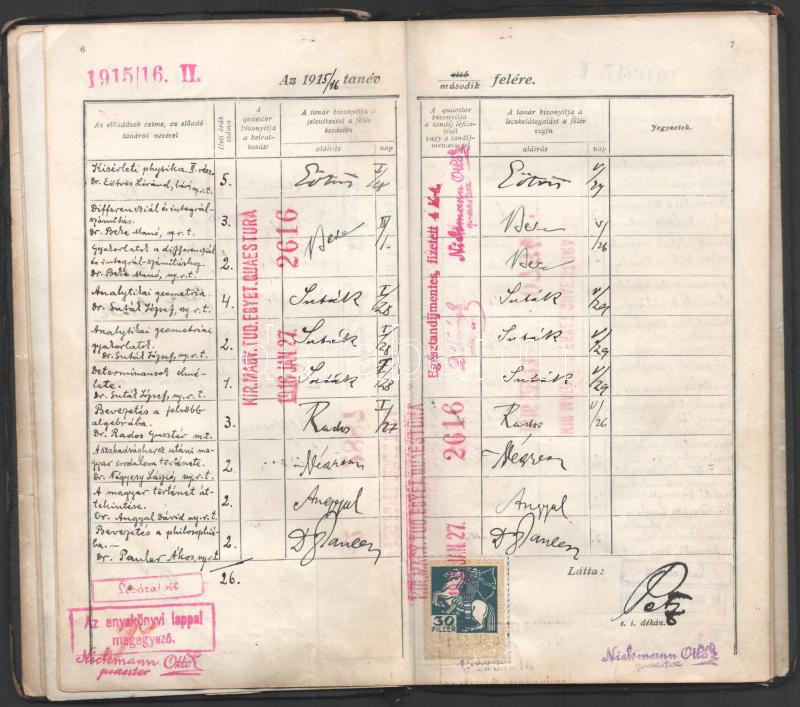 6
1915/16. II.
Az 1915/16 tanév
Az előadások czime, az előadó tanárok nevével
Heti órák száma
A quaestor bizonyitja a beiratkozást
A tanár bizonyitja a jelentkezést a félév kezdetén
aláirás
nap
Kisérleti physika II. rész.
Dr. Eötvös Loránd, báró, ny. r. t.
5.
Eötvös
Differenciál és integrál-
számítás.
Dr. Beke Manó, ny. r. t.
3.
Beke
Gyakorlatok a differenciál
és integrál-számításhoz.
Dr. Beke Manó, ny. r. t.
2.
Analytikai geometria.
Dr. Suták József, ny. r. t.
4.
Suták
I/28
Analytikai geometriai
gyakorlatok.
Dr. Suták József, ny. r. t.
2.
Suták
I/28
Determinánsok elmé-
lete.
Dr. Suták József, ny. r. t.
1.
Suták
I/28
Bevezetés a felsőbb
algebrába.
Dr. Rados Gusztáv m. t.
3.
Rados
I/27
A szabadságharcz utáni ma-
gyar irodalom története.
Dr. Négyesy László, ny. r. t.
2.
A magyar történet át-
tekintése.
Dr. Angyal Dávid ny. r. t.
2.
Angyal
Bevezetés a philosophiá-
ba.
Dr. Pauler Ákos, ny. r. t.
2.
Dr Pauler
26.
KIR. MAGY. TUD. EGYET. QUAESTURA
2616
1916 JAN 27.
Az anyakönyvi lappal
megegyező.
Nickmann Ottó
quaestor
7
első
második
felére.
A quaestor bizonyitja a tandij lefizetését vagy a tandijmentességet
A tanár bizonyitja a leczkelátogatást a félév végén
aláirás
nap
Jegyzetek.
Egésztandijmentes, fizetett 4 K-t.
Nickmann Ottó
quaestor
Eötvös
Beke
V/26
Beke
Suták
V/29
Suták
V/29
Suták
V/29
Rados
V/26
Angyal
Dr Pauler
KIR. MAGY. TUD. EGYET. QUAESTURA
2616
JAN 27.
30
FILLÉR
Látta:
e. i. dékán.
Nickmann Ottó
quaestor